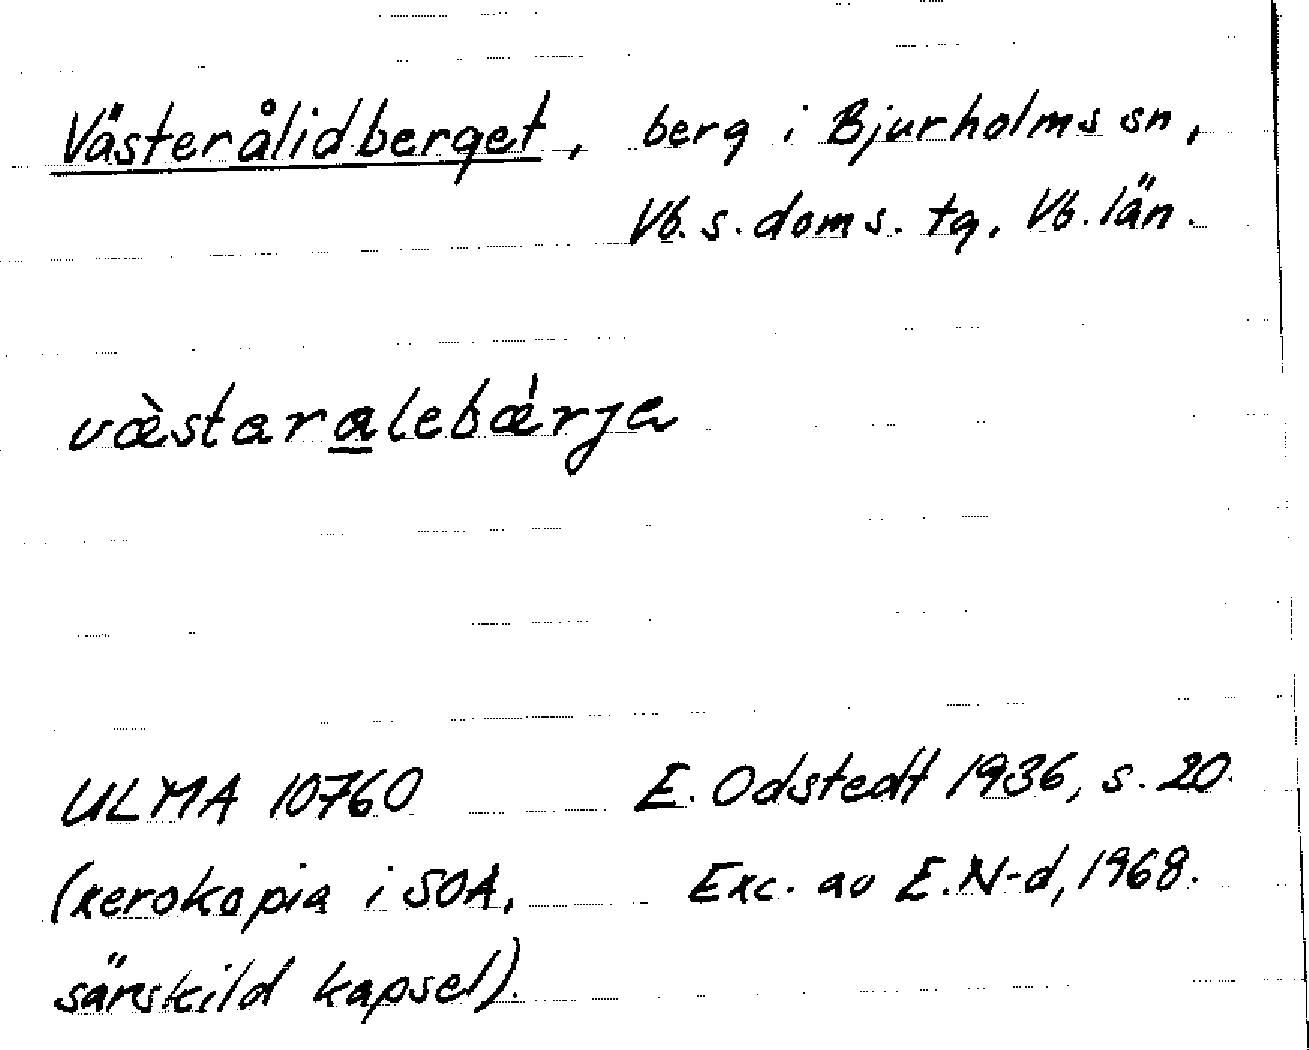 Västerålidberget, berg i Bjurholms sn,
Vb. s. doms. tg, Vb. län.
væ̀staralebǽrja
ULMA 10760 E. Odstedt 1936, s. 20.
(xerokopia i SOA, Exc. av E.N-d, 1968.
särskild kapsel).